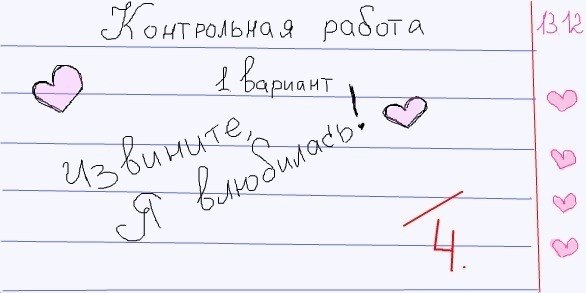 Контрольная работа
13 12
1 вариант
Извините,
Я влюбилась!
/4.